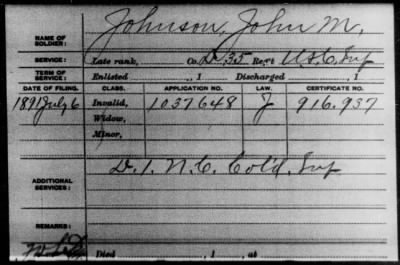 NAME OF SOLDIER: Johnson, John M.
SERVICE: Late rank, Co. D, 35 Reg't U.S.C. Inf
TERM OF SERVICE: Enlisted , 1 Discharged , 1
DATE OF FILING. CLASS. APPLICATION NO. LAW. CERTIFICATE NO.
1891 July 6 Invalid, 1037648 J 916.937
Widow,
Minor,
ADDITIONAL SERVICES: D. 1. N.C. Col'd. Inf
REMARKS:
Died , 1 , at